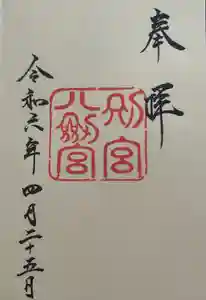 奉拝
別宮
八剣宮
令和六年 四月二十五日